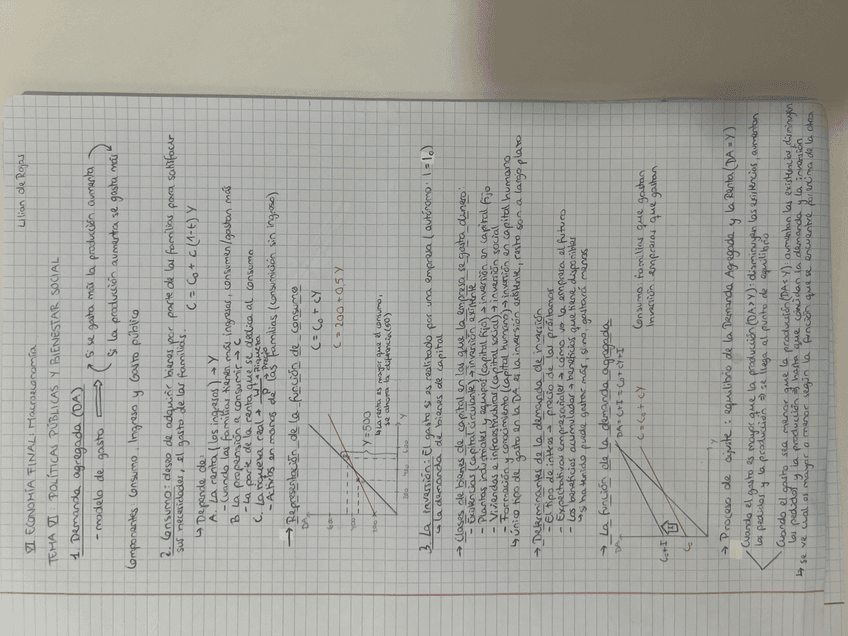 Lilian de Rojas
VI ECONOMÍA FINAL: Macroeconomía
TEMA VI. POLÍTICAS PÚBLICAS Y BIENESTAR SOCIAL
1. Demanda agregada (DA)
- modelo de gasto ⟹ Si se gasta más la produción aumenta
Si la producción aumenta se gasta más
Componentes: Consumo. Ingreso y Gasto público
2. Consumo: deseo de adquirir bienes por parte de las familias para satisfacer
sus necesidades, el gasto de las familias. C = C₀ + c (1-t) Y
↳ Depende de:
A. La renta (los ingresos) → Y
- Cuando las familias tienen más ingresos, consumen/gastan más
B. La propensión a consumir → c
- La parte de la renta que se dedica al consumo
C. La riqueza real →
- Activos en manos de las familias (consumición sin ingreso)
→ Representación de la función de consumo
DA
C = C₀ + cY
C = 200 + 0,5 Y
Y = 500
↳ La renta es mayor que el consumo,
se ahorra la diferencia (50)
Y
3. La Inversión: El gasto si es realizado por una empresa (autónomo: I = I₀)
↳ la demanda de bienes de capital
→ Clases de bienes de capital en los que la empresa se gasta dinero:
- Existencias (capital circulante) → inversión existente
- Plantas industriales y equipos (capital fijo) → inversión en capital fijo
- Viviendas e infraestructuras (capital social) → inversión social
- Formación y conocimiento (capital humano) → inversión en capital humano
↳ único tipo de gasto en la DA es la inversión existente, resto son a largo plazo
→ Determinantes de la demanda de inversión
- El tipo de interés → precio de los préstamos
- Expectativas empresariales → cómo ve la empresa el futuro
- Los beneficios acumulados → beneficios que tiene disponibles
↳ Si ha tenido puede gastar más, si no, gastará menos
→ La función de la demanda agregada
DA
DA = C + I = C₀ + cY + I
C = C₀ + cY
C₀+I
I
C₀
Y
Consumo: familias que gastan
Inversión: empresas que gastan
→ Proceso de ajuste: equilibrio de la Demanda Agregada y la Renta (DA = Y)
Cuando el gasto es mayor que la producción (DA>Y): disminuyen las existencias, aumentan
los pedidos y la producción ⇒ se llega al punto de equilibrio
Cuando el gasto sea menor que la producción (DA<Y) aumentan las existencias, disminuyen
los pedidos y la producción ⇒ hasta que coincidan la demanda y la inversión
↳ se ve cual es mayor o menor según la función que se encuentre por encima de la otra